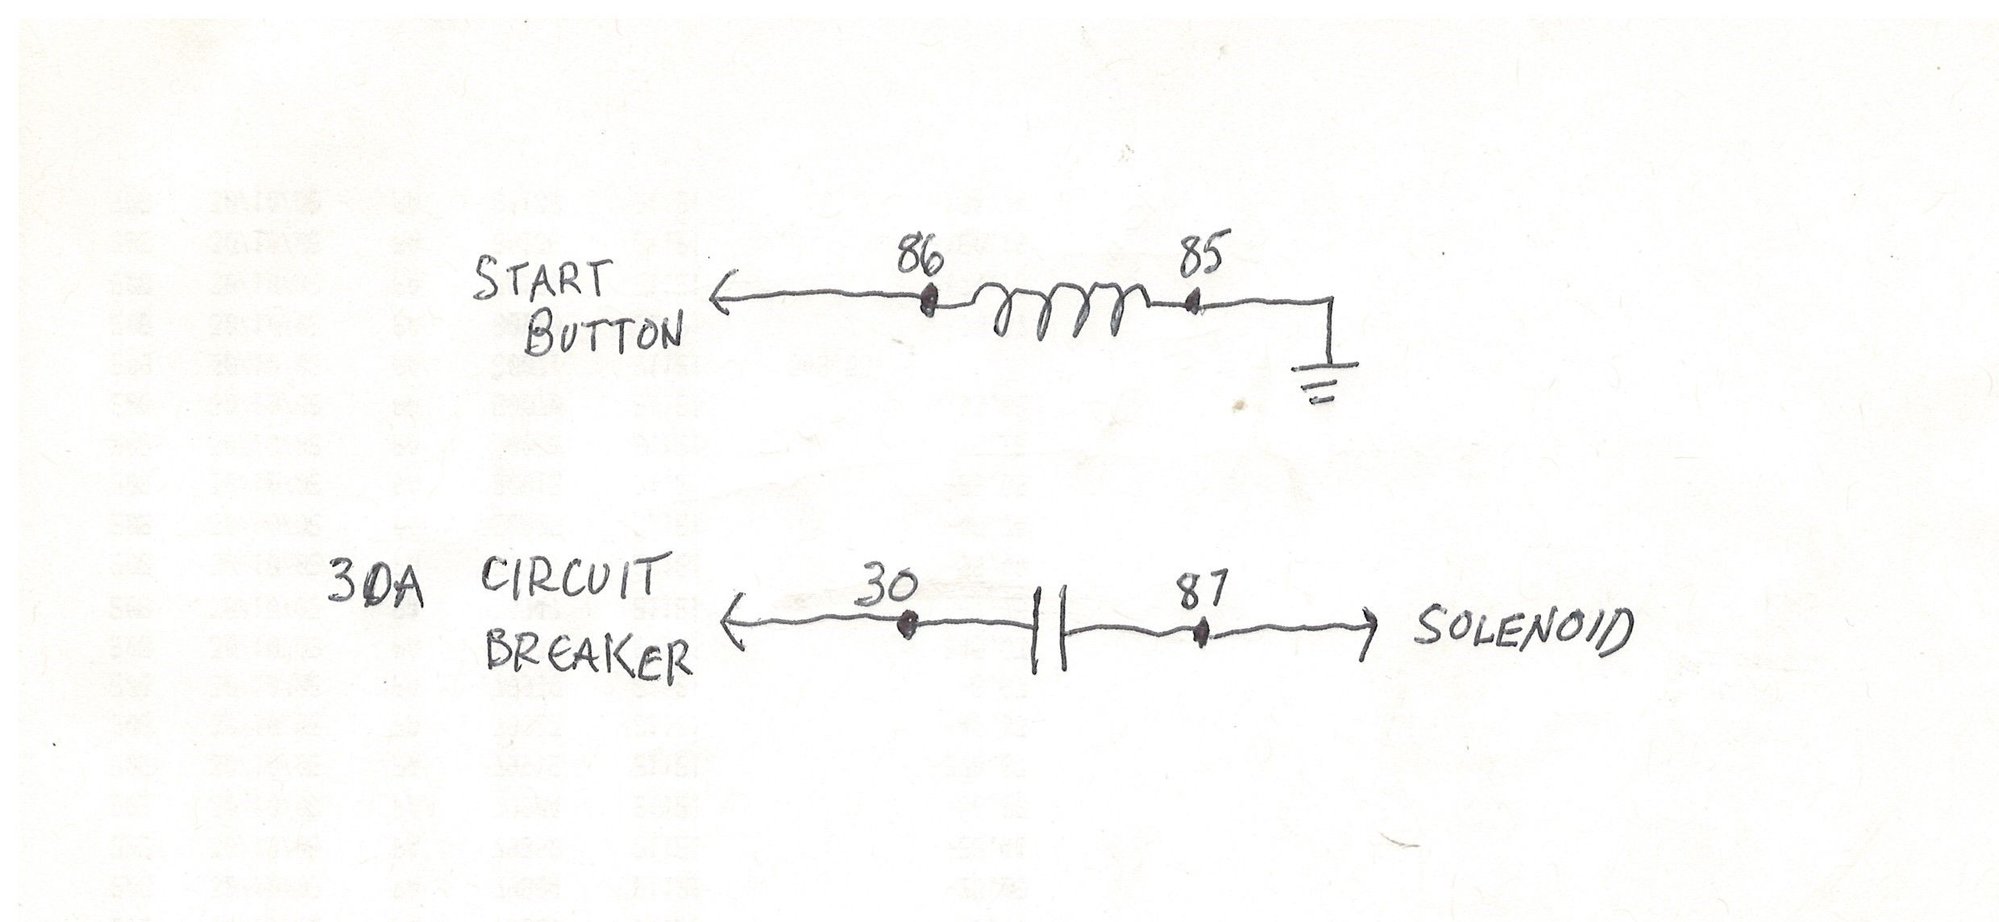 86 85
START
BUTTON
30A CIRCUIT
BREAKER
30 87
SOLENOID